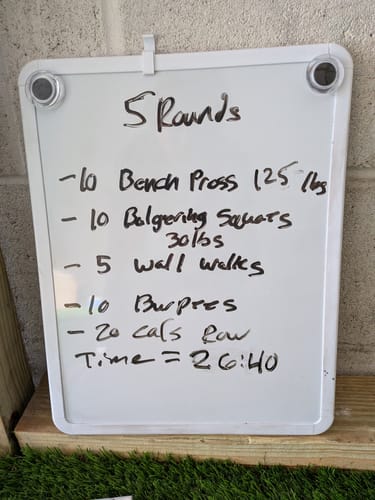 5 Rounds
- 10 Bench Press 125 lbs
- 10 Bolgering Squats
30lbs
- 5 Wall Walks
- 10 Burpees
- 20 Cals Row
Time = 26:40